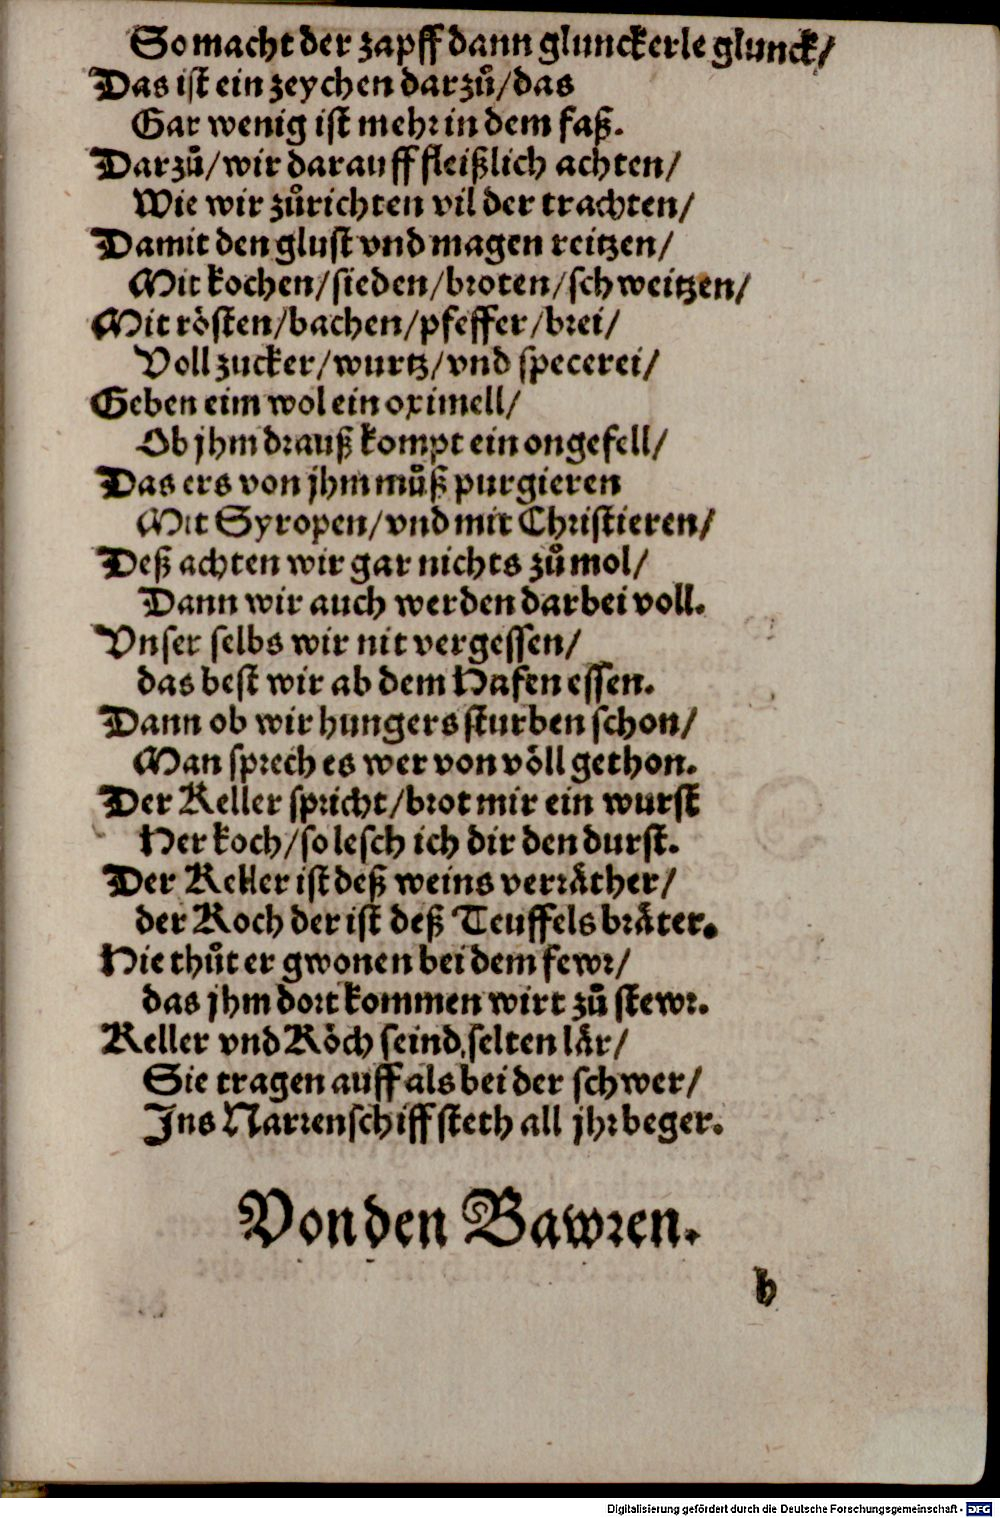 So macht der zapff dann glunckerle glunck/
Das ist ein zeychen darzů/das
Gar wenig ist mehr in dem faß.
Darzů/wir darauff fleißlich achten/
Wie wir zůrichten vil der trachten/
Damit den glust vnd magen reitzen/
Mit kochen/sieden/broten/schweitzen/
Mit rösten/bachen/pfeffer/brei/
Voll zucker/wurtz/vnd specerei/
Geben eim wol ein oximell/
Ob jhm drauß kompt ein ongefell/
Das ers von jhm můß purgieren
Mit Syropen/vnd mit Christieren/
Deß achten wir gar nichts zů mol/
Dann wir auch werden darbei voll.
Vnser selbs wir nit vergessen/
das best wir ab dem Hafen essen.
Dann ob wir hungers sturben schon/
Man sprech es wer von völl gethon.
Der Keller spricht/brot mir ein wurst
Her koch/so lesch ich dir den durst.
Der Keller ist deß weins verräther/
der Koch der ist deß Teuffels bräter.
Hie thůt er gwonen bei dem fewr/
das jhm dort kommen wirt zů stewr.
Keller vnd Köch seind selten lär/
Sie tragen auff als bei der schwer/
Ins Narrenschiff steth all jhr beger.
Von den Bawren.
h
Digitalisierung gefördert durch die Deutsche Forschungsgemeinschaft - DFG